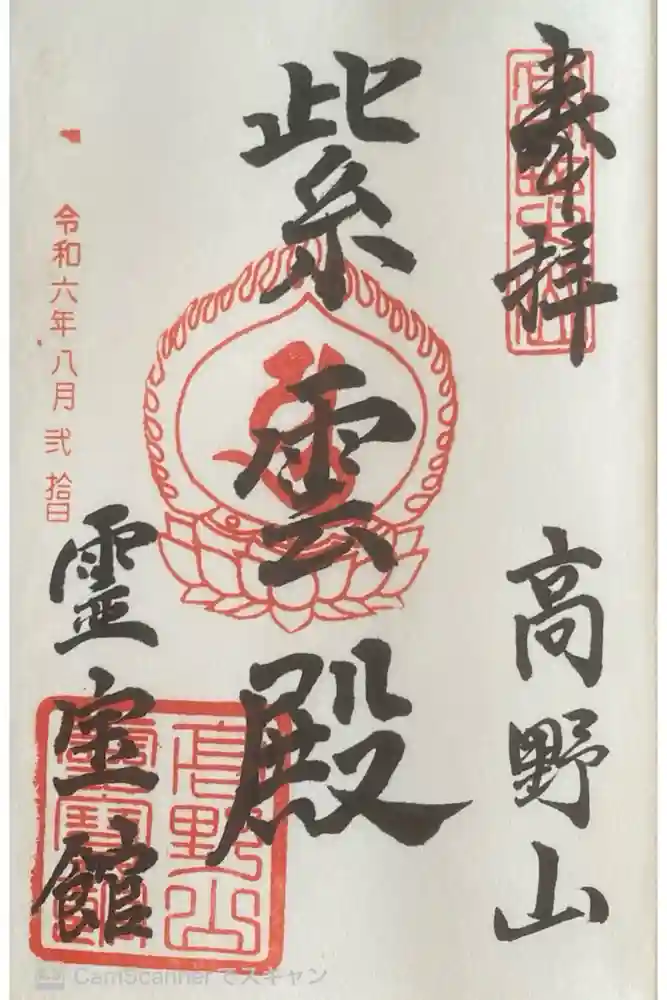 奉拝
高野山
紫雲殿
令和六年八月弐拾日
霊宝館
高野山
霊寶館
CamScannerでスキャン